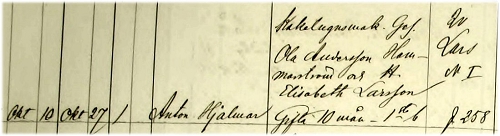 Kakelugnsmak. Ges. Qv
Ola Andersson Ham- Lars
marstrand och H. N I
Elisabeth Larsson
Okt 10 Okt 27 1 Anton Hjalmar Gifte 10 mån - 1 6 f 258